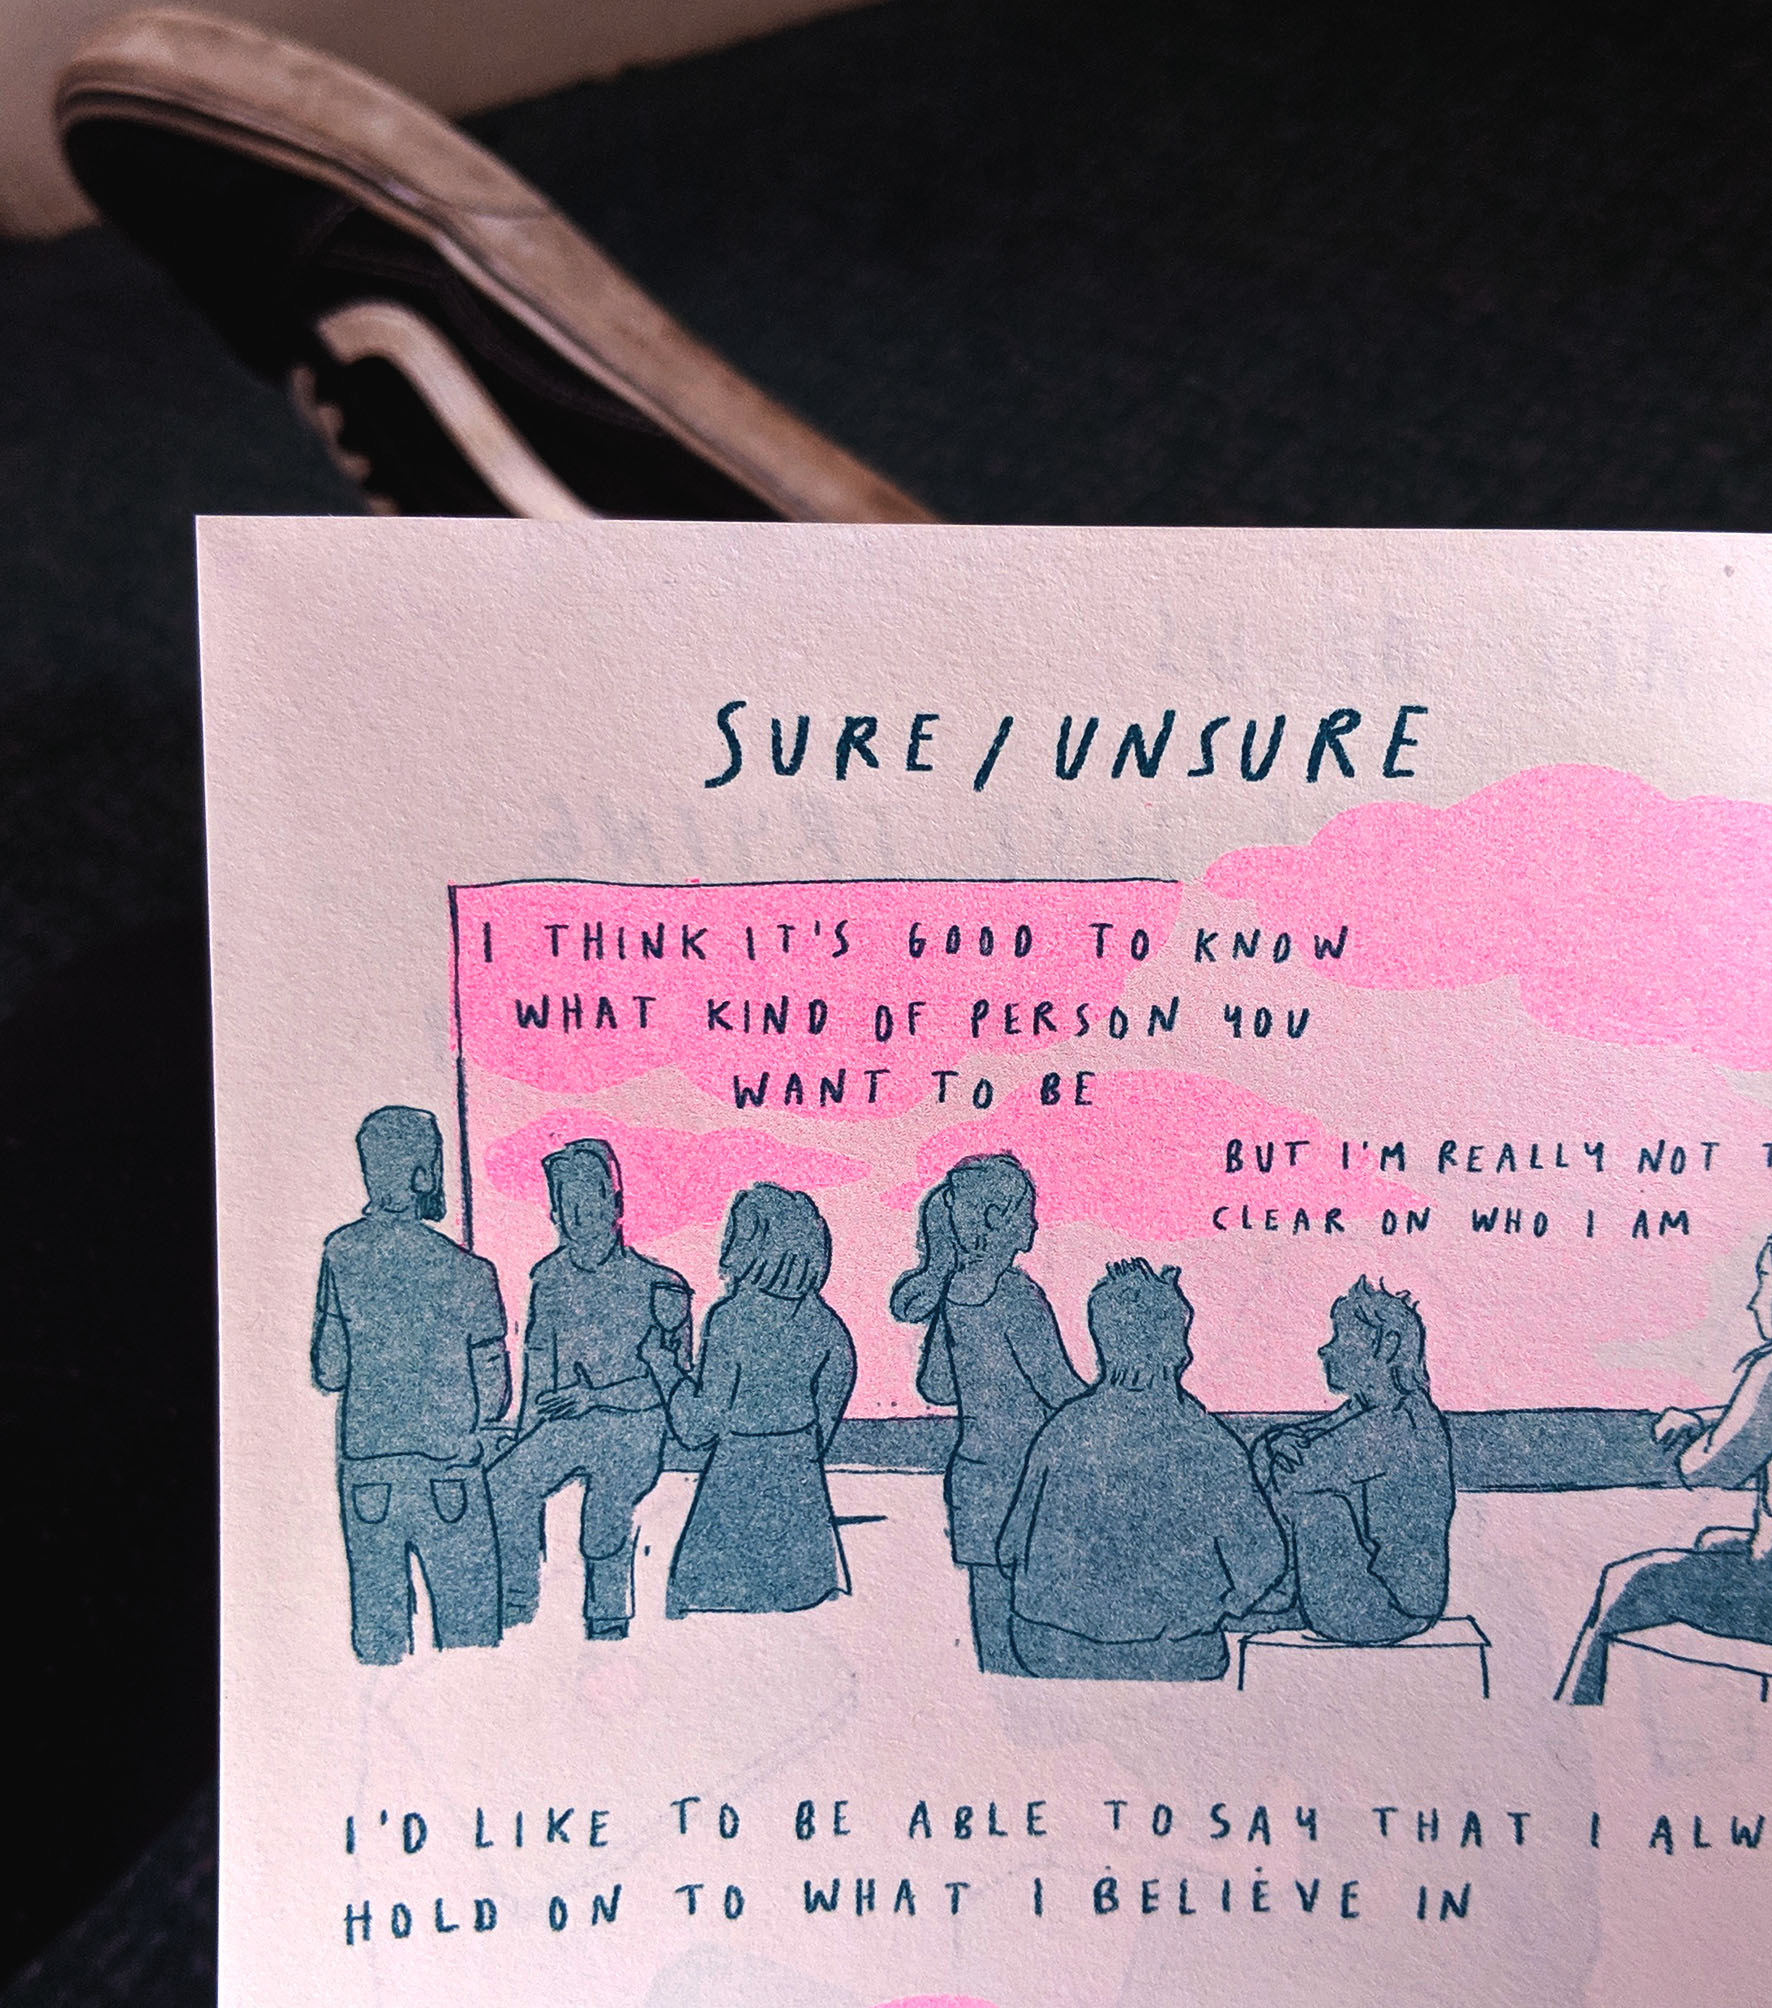 SURE / UNSURE
I THINK IT'S GOOD TO KNOW
WHAT KIND OF PERSON YOU
WANT TO BE
BUT I'M REALLY NOT
CLEAR ON WHO I AM
I'D LIKE TO BE ABLE TO SAY THAT I
HOLD ON TO WHAT I BELIEVE IN